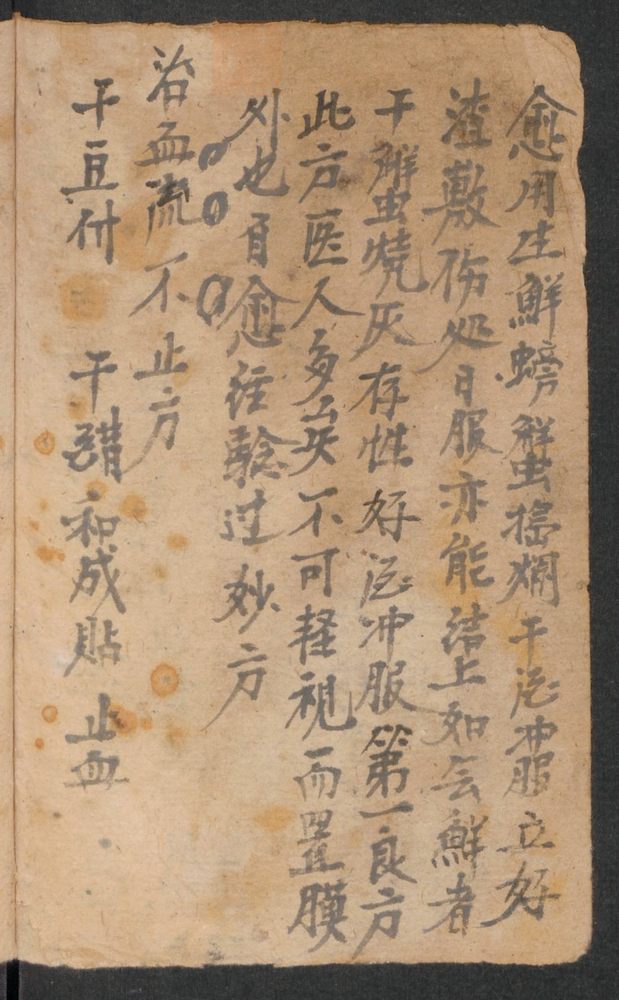 愈用生鮮螃蟹搗爛干汔冲服立好
渣敷伤処日服亦能结上如会鮮者
干蟹烧灰存性好汔冲服第一良方
此方医人多矣不可轻視而置膜
外也百愈经驗过妙方
治血流不止方
干豆付 干醋和成貼止血